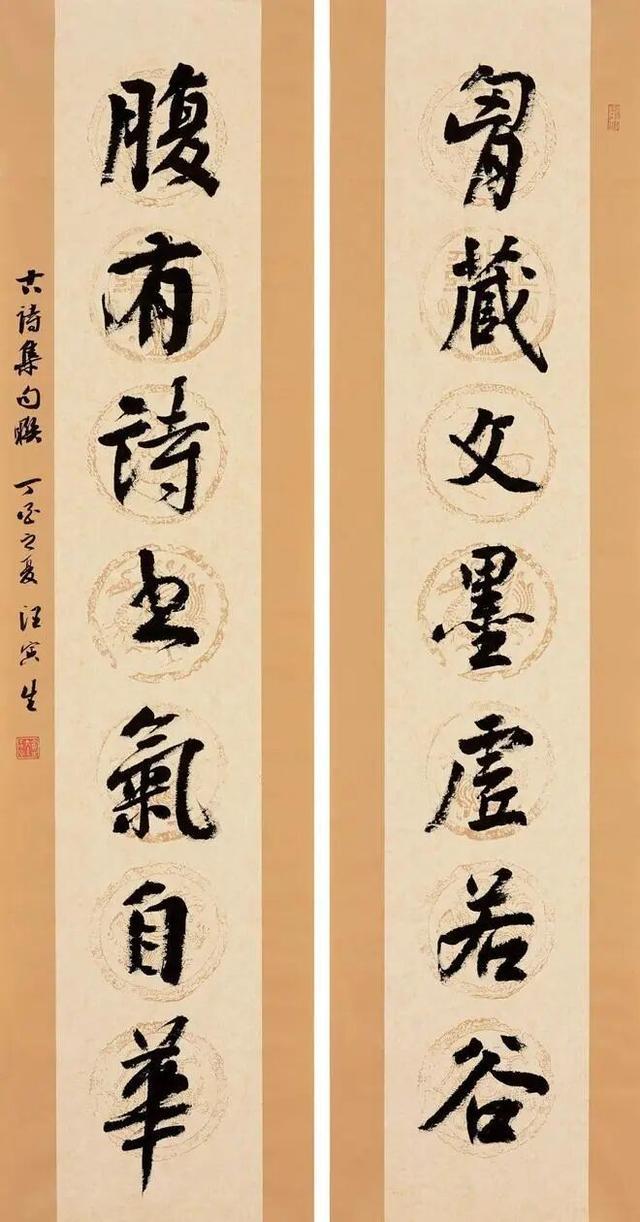 胷藏文墨虛若谷
腹有詩书氣自華
古詩集句聯 丁酉之夏 汪寅生